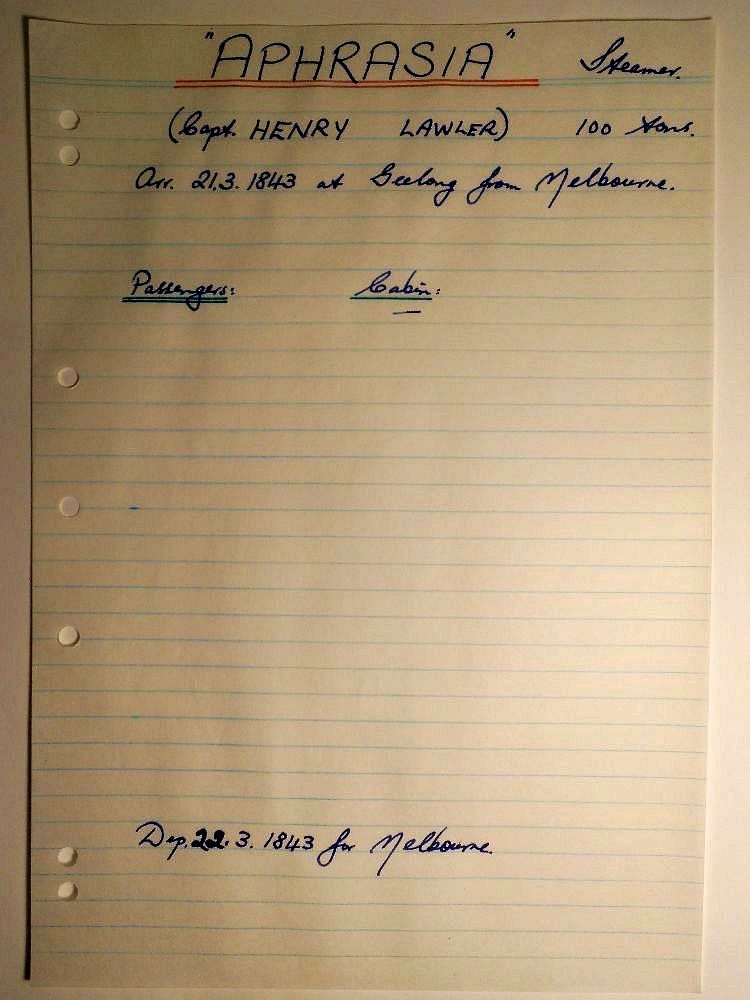 "APHRASIA" Steamer.
(Capt. HENRY LAWLER) 100 tons.
Arr. 21.3.1843 at Geelong from Melbourne.
Passengers: Cabin:
—
Dep. 22.3.1843 for Melbourne.